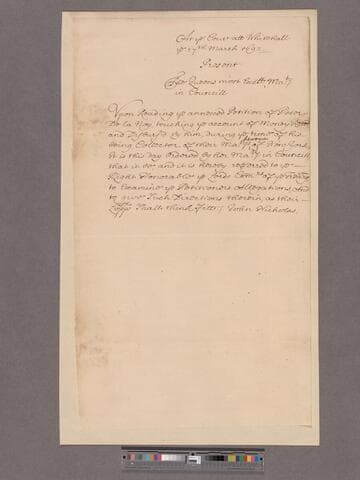 Att ye Court att Whitehall
ye 17th March 1692
Present
The Queens most Excellt. Maty
in Councill
Upon Reading ye annexed Petition of Peter
De la Noy touching ye account of Moneys
and Disburs'd by him, during ye time of his
being Collector of their Matys Revenue of New York,
It is this day Ordered by her Maty in Councill
that it be, and it is hereby referred to ye
Right Honorable ye Lords Comrs of ye
to Examine ye Petitioners Allegations and
to give such Directions therein as their
Lopps shall think fitt John Nicholas